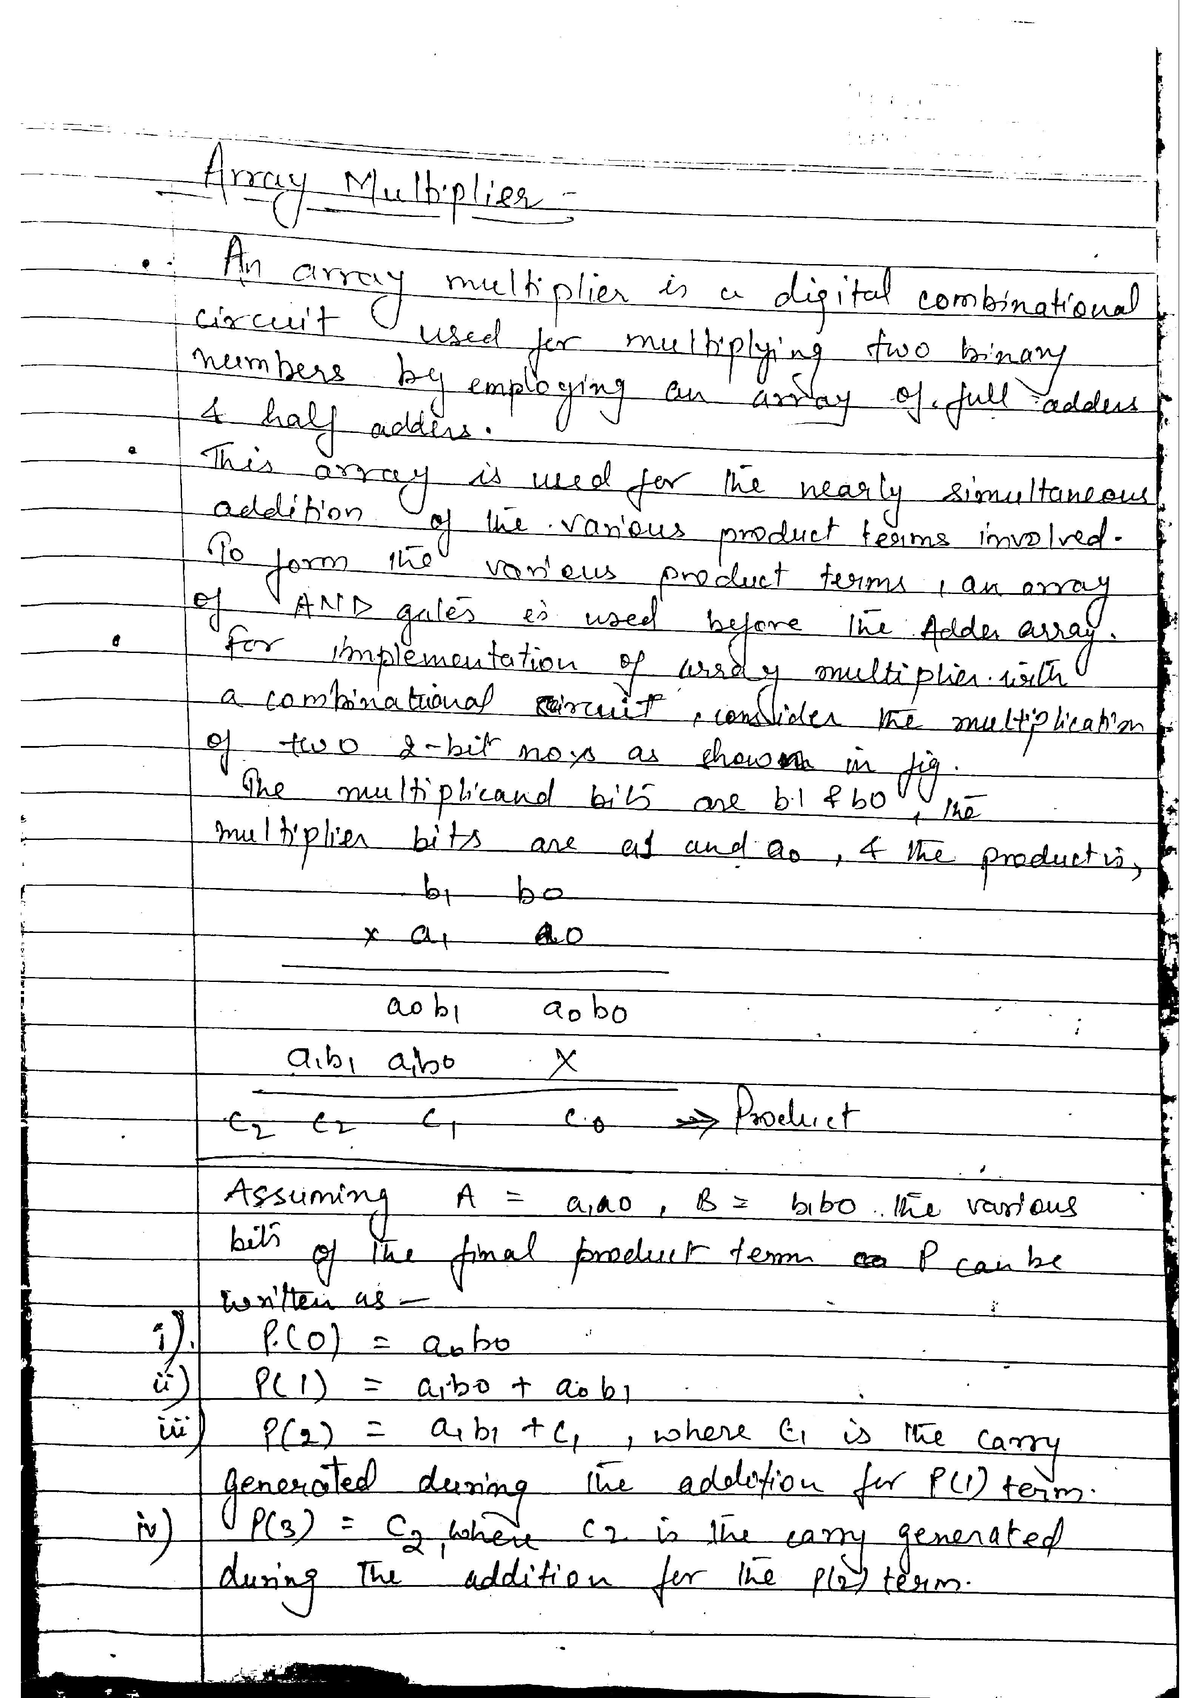 Array Multiplier -
• An array multiplier is a digital combinational
circuit used for multiplying two binary
numbers by employing an array of full adders
& half adders.
• This array is used for the nearly simultaneous
addition of the various product terms involved.
To form the various product terms, an array
of AND gates is used before the Adder array.
• For implementation of array multiplier with
a combinational circuit, consider the multiplication
of two 2-bit no,s as shown in fig.
The multiplicand bits are b1 & b0, the
multiplier bits are a1 and a0, & the product is,
b1 b0
x a1 a0
a0b1 a0b0
a1b1 a1b0 X
C2 C2 C1 C0 ->> Product
Assuming A = a1a0, B = b1b0. the various
bits of the final product term P can be
written as -
i). P(0) = a0b0
ii) P(1) = a1b0 + a0b1
iii) P(2) = a1b1 + C1, where C1 is the carry
generated during the addition for P(1) term.
iv) P(3) = C2, where C2 is the carry generated
during the addition for the P(2) term.